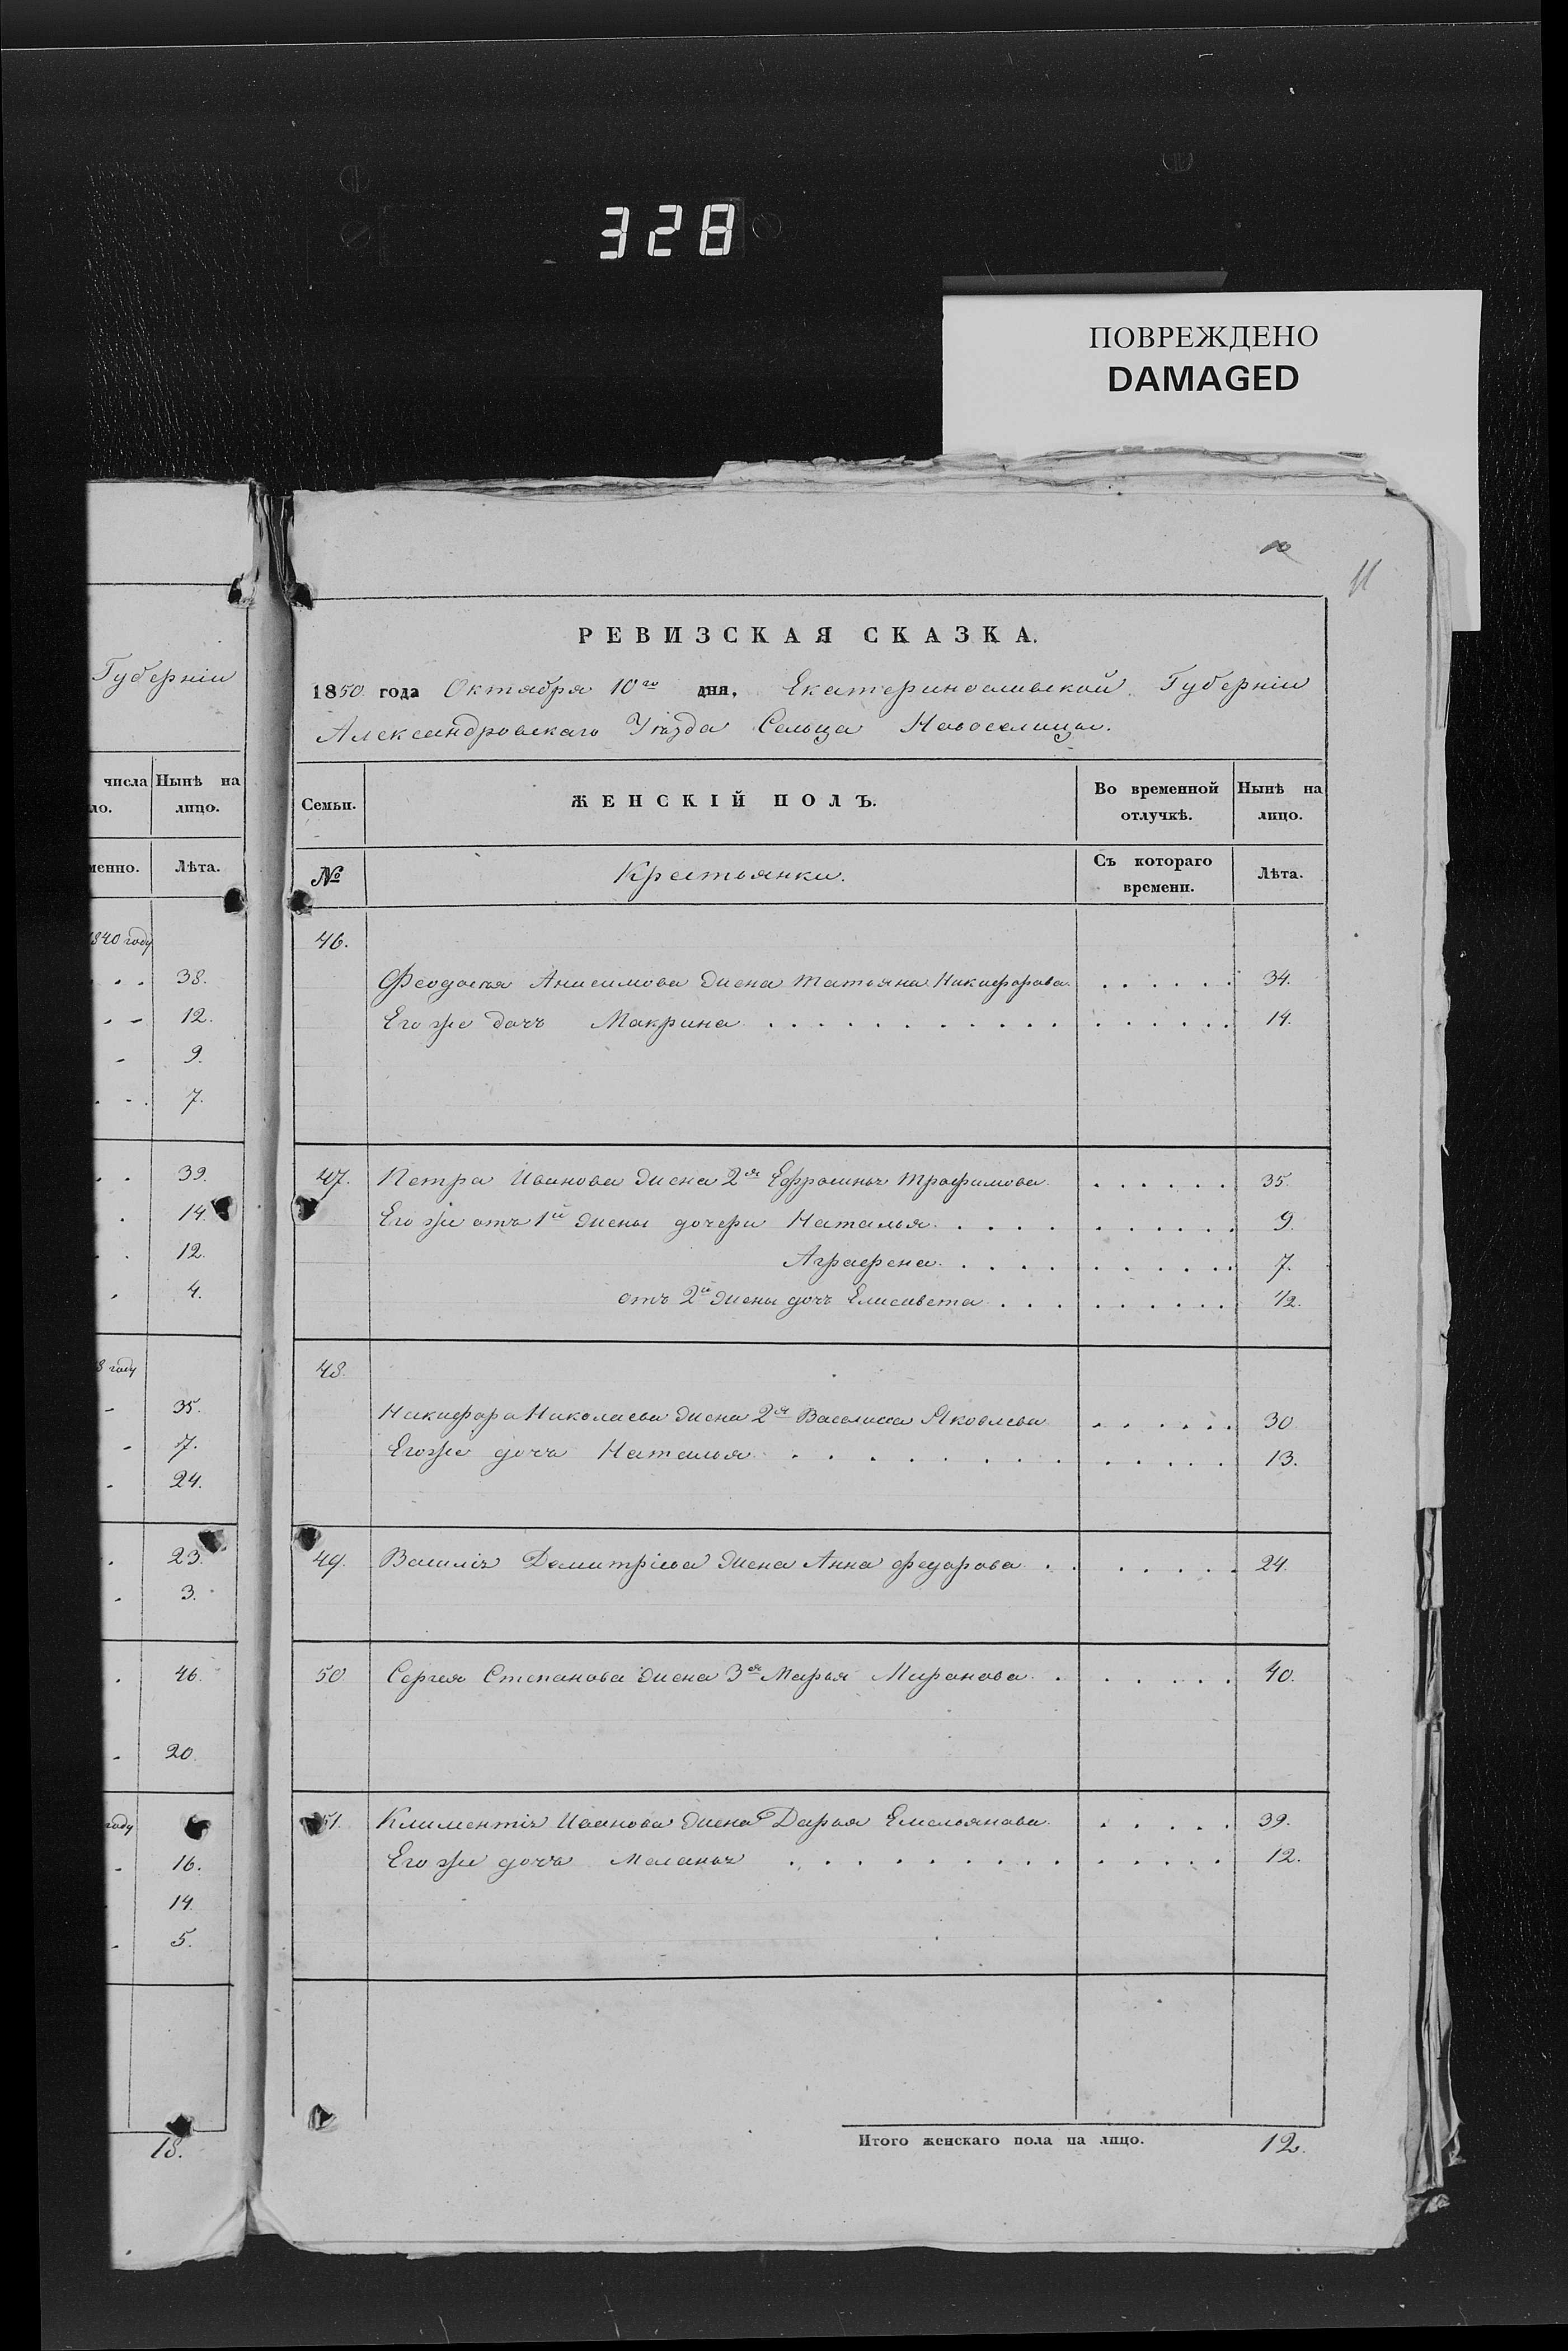 328
ПОВРЕЖДЕНО
DAMAGED
11
РЕВИЗСКАЯ СКАЗКА.
1850 года Октября 10го дня, Екатеринославской Губерніи
Александровскаго Уѣзда Сельца Новоселицы.
Семьи.
ЖЕНСКІЙ ПОЛЪ.
Во временной отлучкѣ.
Нынѣ на лицо.
№
Крестьянки.
Съ котораго времени.
Лѣта.
46.
Феодосія Анисимова жена Татьяна Никифорова 34.
Его же дочь Макрина 14.
47. Петра Иванова жена 2я Ефросинья Трофимова 35.
Его же отъ 1й жены дочери Наталья 9.
Аграфена 7.
отъ 2й жены дочь Елисавета 1/2.
48.
Никифора Николаева жена 2я Василиса Яковлева 30
Его же дочь Наталья 13.
49. Василія Демитріева жена Анна Федорова 24.
50 Сергея Степанова жена 3я Марья Миронова 40.
51. Климентія Иванова жена Дарья Емельянова 39.
Его же дочь Меланья 12.
Итого женскаго пола на лицо. 12.
Губерніи
числа Нынѣ на
ло. лицо.
менно. Лѣта.
1840 году
38.
12.
9.
7.
39.
14.
12.
4.
8 году
35.
7.
24.
23.
3.
46.
20.
году
16.
14
5.
18.